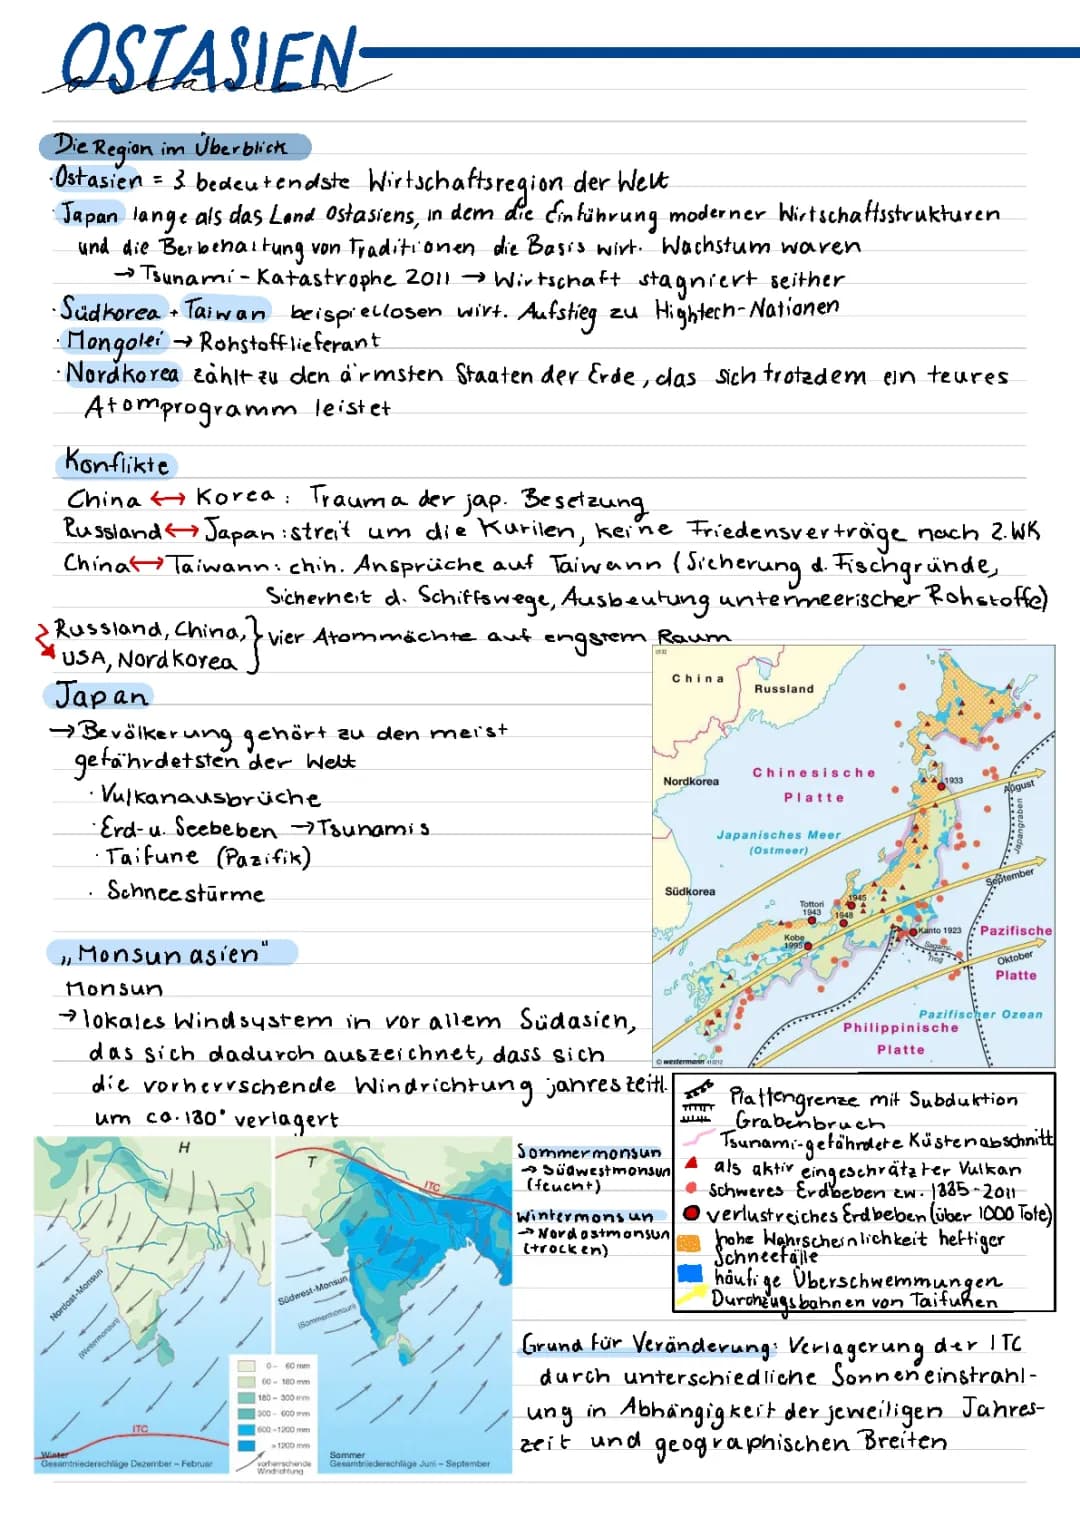 OSTASIEN
ostasien
Die Region im Überblick
·Ostasien = 3. bedeutendste Wirtschaftsregion der Welt
·Japan lange als das Land Ostasiens, in dem die Einführung moderner Wirtschaftsstrukturen
und die Beibehaltung von Traditionen die Basis wirt. Wachstum waren
→ Tsunami-Katastrophe 2011 → Wirtschaft stagniert seither
·Südkorea + Taiwan beispiellosen wirt. Aufstieg zu Hightech-Nationen
·Mongolei → Rohstofflieferant
·Nordkorea zählt zu den ärmsten Staaten der Erde, das sich trotzdem ein teures
Atomprogramm leistet
Konflikte
China ↔ Korea: Trauma der jap. Besetzung
Russland ↔ Japan: streit um die Kurilen, keine Friedensverträge nach 2.WK
China ↔ Taiwann: chin. Ansprüche auf Taiwann (Sicherung d. Fischgründe,
Sicherheit d. Schiffswege, Ausbeutung untermeerischer Rohstoffe)
Russland, China, } vier Atommächte auf engstem Raum
USA, Nordkorea
Japan
→ Bevölkerung gehört zu den meist
gefährdetsten der Welt
· Vulkanausbrüche
· Erd- u. Seebeben → Tsunamis
· Taifune (Pazifik)
· Schneestürme
China
Russland
Nordkorea
Chinesische
Platte
1933
August
Japangraben
Japanisches Meer
(Ostmeer)
September
Südkorea
Tottori
1943
1945
1948
Kobe
1995
Kanto 1923
Sagami-
Trog
Pazifische
Platte
Oktober
Pazifischer Ozean
Philippinische
Platte
© westermann
„Monsunasien"
Monsun
→ lokales Windsystem in vor allem Südasien,
das sich dadurch auszeichnet, dass sich
die vorherrschende Windrichtung jahreszeitl.
um ca. 180° verlagert
Plattengrenze mit Subduktion
Grabenbruch
Tsunami-gefährdete Küstenabschnitt
als aktiv eingeschrätzter Vulkan
Schweres Erdbeben zw. 1885-2011
verlustreiches Erdbeben (über 1000 Tote)
hohe Wahrscheinlichkeit heftiger
Schneefälle
häufige Überschwemmungen
Durchzugsbahnen von Taifunen
H
Nordost-Monsun
(Wintermonsun)
ITC
Winter
Gesamtniederschläge Dezember – Februar
T
ITC
Südwest-Monsun
(Sommermonsun)
0 – 60 mm
60 – 180 mm
180 – 300 mm
300 – 600 mm
600 – 1200 mm
> 1200 mm
vorherrschende
Windrichtung
Sommer
Gesamtniederschläge Juni – September
Sommermonsun
→ Südwestmonsun
(feucht)
Wintermonsun
→ Nordostmonsun
(trocken)
Grund für Veränderung: Verlagerung der ITC
durch unterschiedliche Sonneneinstrahl-
ung in Abhängigkeit der jeweiligen Jahres-
zeit und geographischen Breiten